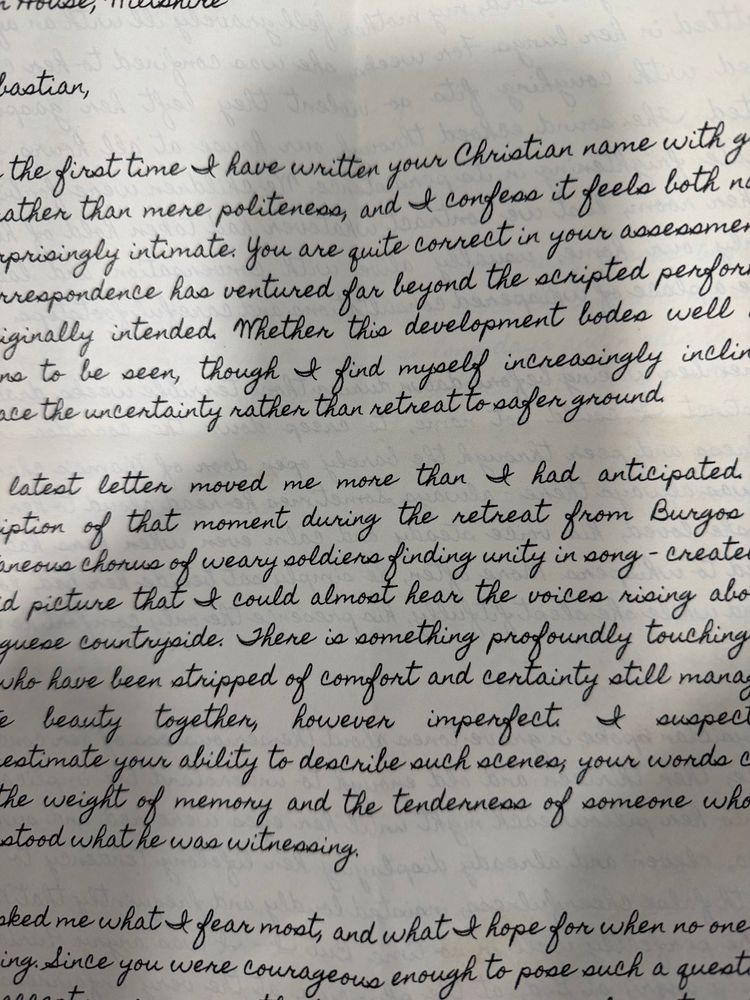 House, Wiltshire
bastian,
the first time I have written your Christian name with g
rather than mere politeness, and I confess it feels both no
rprisingly intimate. You are quite correct in your assessmen
rrespondence has ventured far beyond the scripted perfor
iginally intended. Whether this development bodes well
ns to be seen, though I find myself increasingly inclin
ace the uncertainty rather than retreat to safer ground.
latest letter moved me more than I had anticipated.
iption of that moment during the retreat from Burgos
aneous chorus of weary soldiers finding unity in song - create
id picture that I could almost hear the voices rising abo
guese countryside. There is something profoundly touching
who have been stripped of comfort and certainty still manag
e beauty together, however imperfect. I suspect
estimate your ability to describe such scenes; your words c
the weight of memory and the tenderness of someone who
stood what he was witnessing.
sked me what I fear most, and what I hope for when no one
ing. Since you were courageous enough to pose such a quest